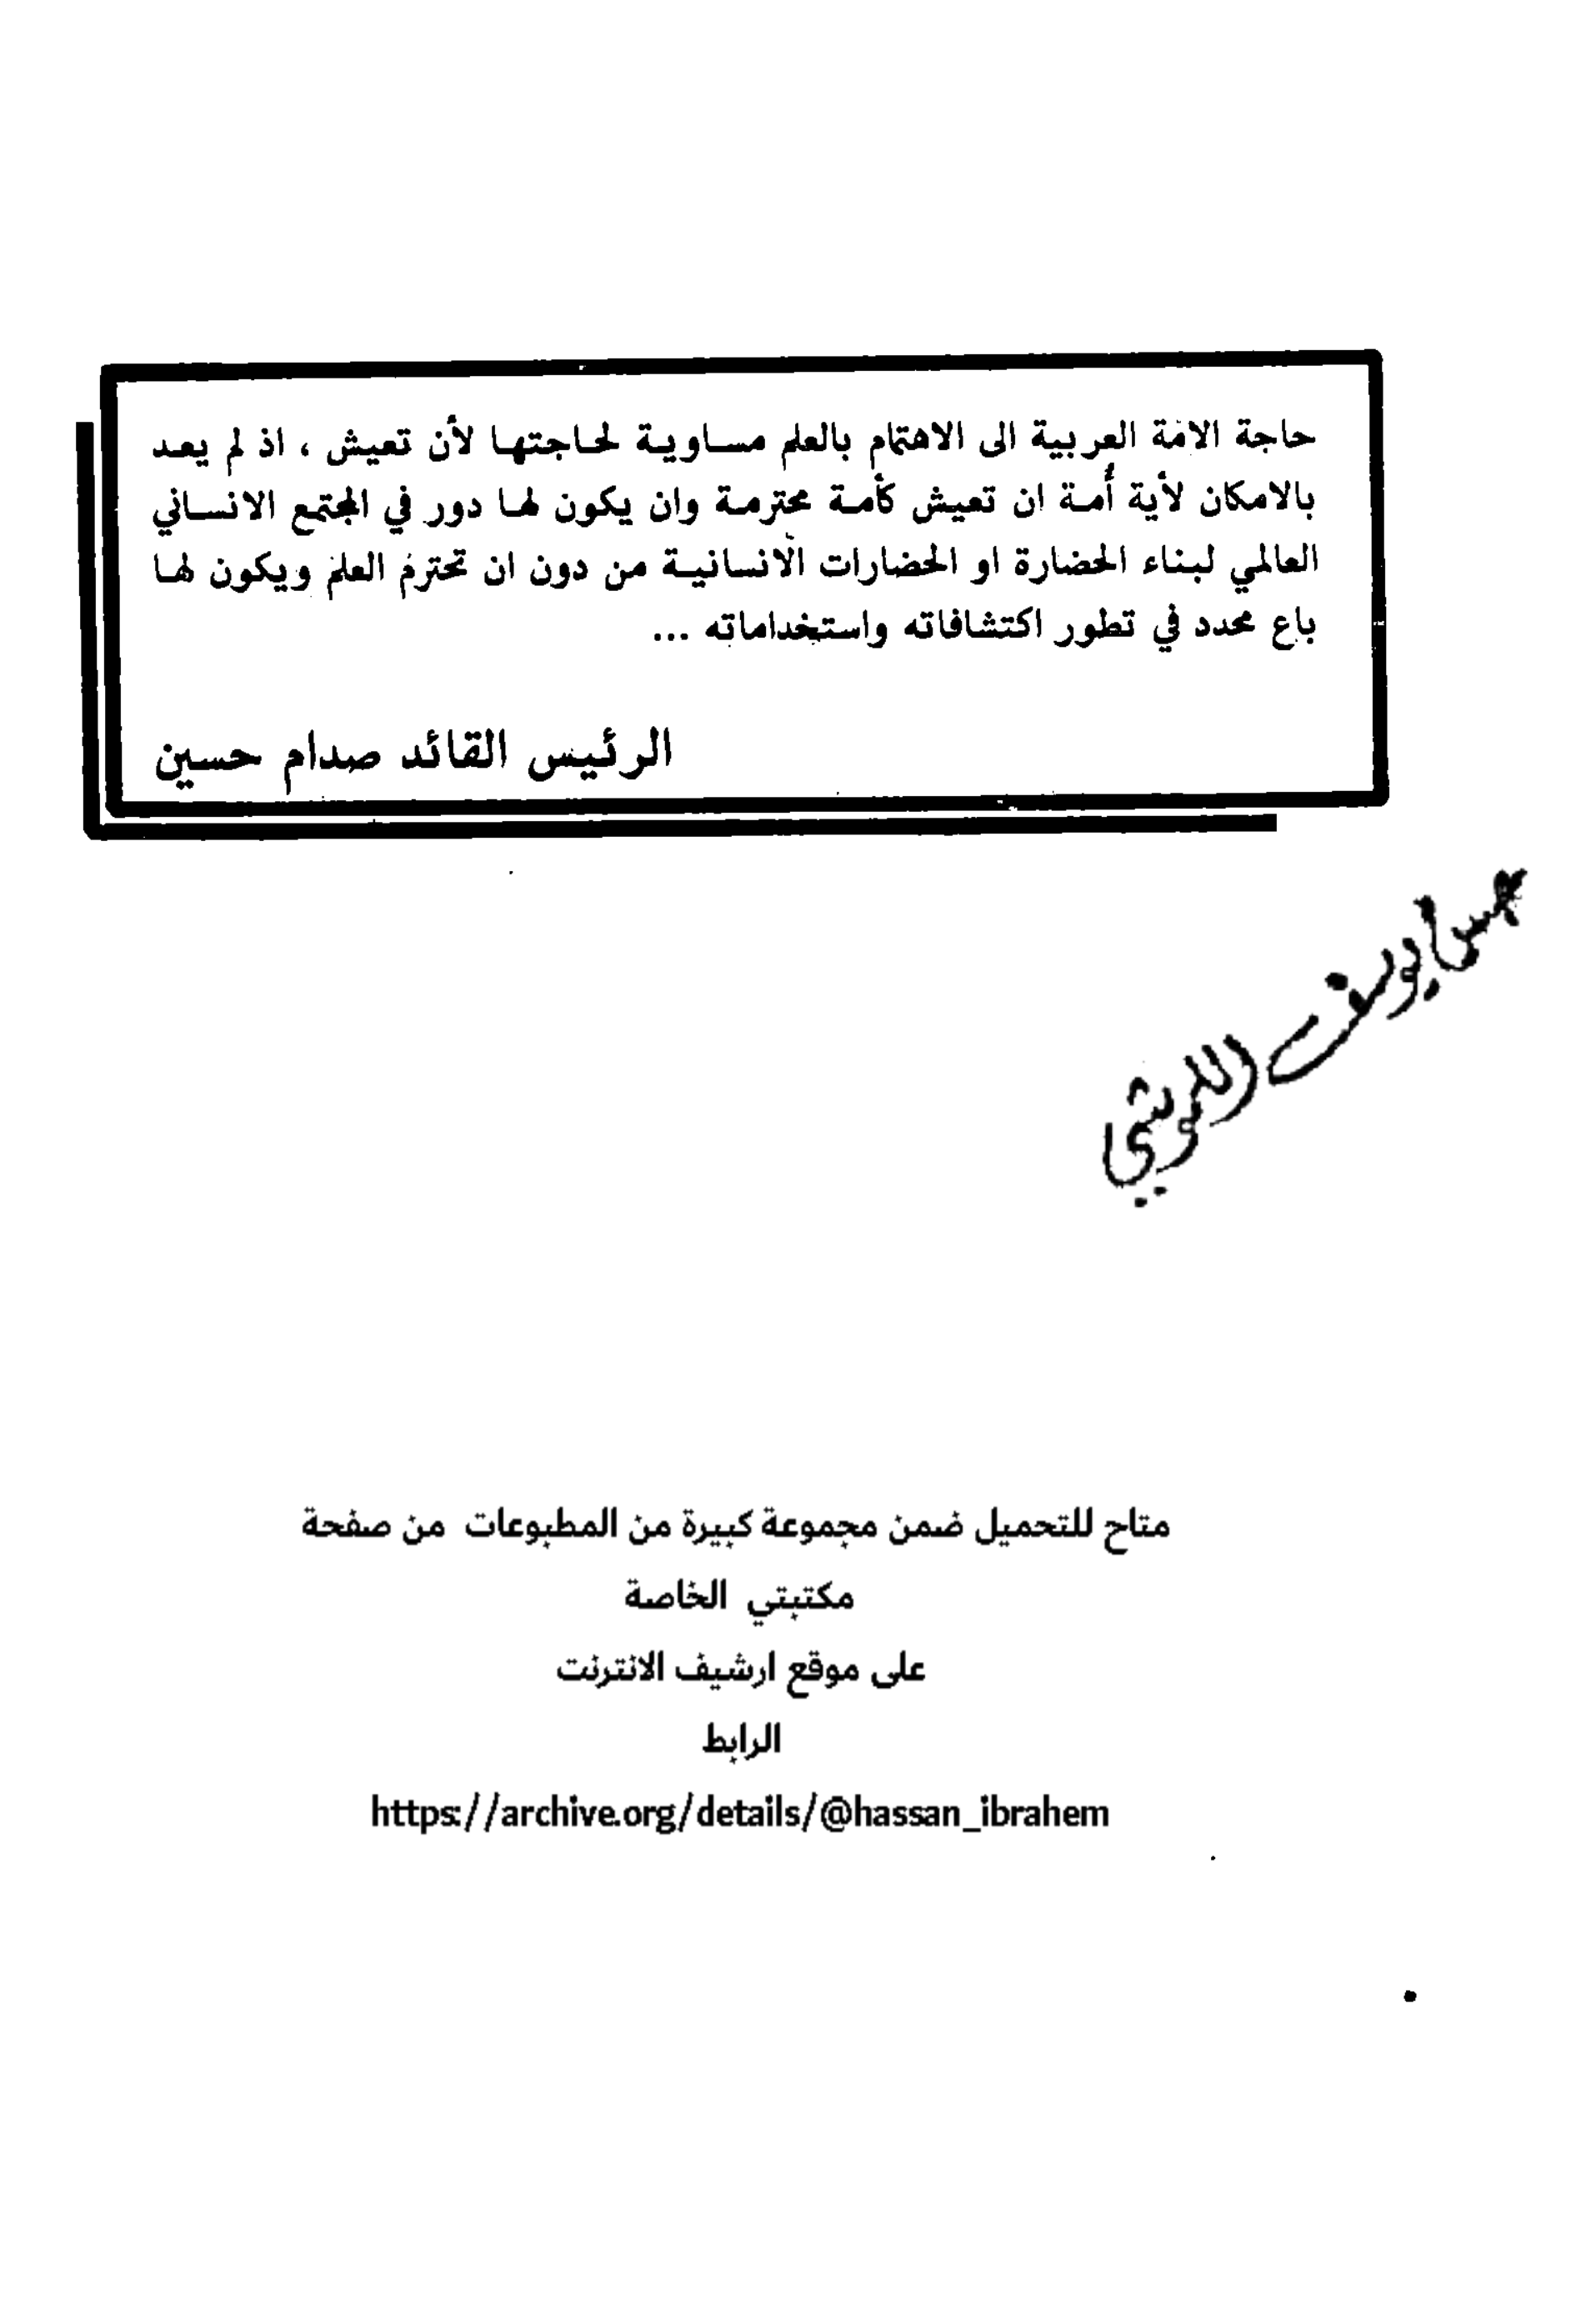 حاجة الامة العربية الى الاهتمام بالعلم مساوية لحاجتها لأن تعيش ، اذ لم يعد
بالامكان لأية أمة ان تعيش كأمة محترمة وان يكون لها دور في المجتمع الانساني
العالمي لبناء الحضارة او الحضارات الانسانية من دون ان تحترم العلم ويكون لها
باع محدد في تطور اكتشافاته واستخداماته ...
الرئيس القائد صدام حسين
يوسف
متاح للتحميل ضمن مجموعة كبيرة من المطبوعات من صفحة
مكتبتي الخاصة
على موقع ارشيف الانترنت
الرابط
https://archive.org/details/@hassan_ibrahem